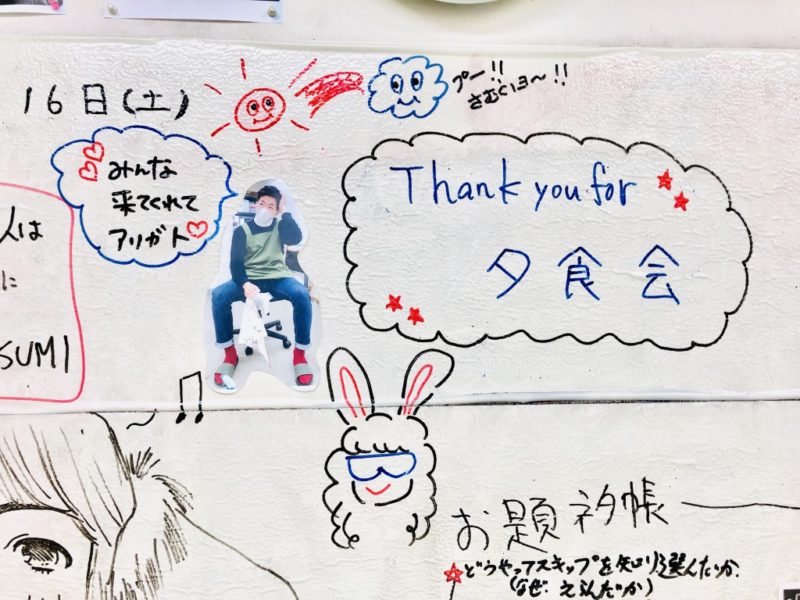 16日(土)
プー!!
さむくいヨ〜!!
みんな
来てくれて
アリガト
Thank you for
夕食会
人は
に
SUMI
お題 ネタ帳
どうやってスキップを知り選んだか.
(なぜ. えらんだか)